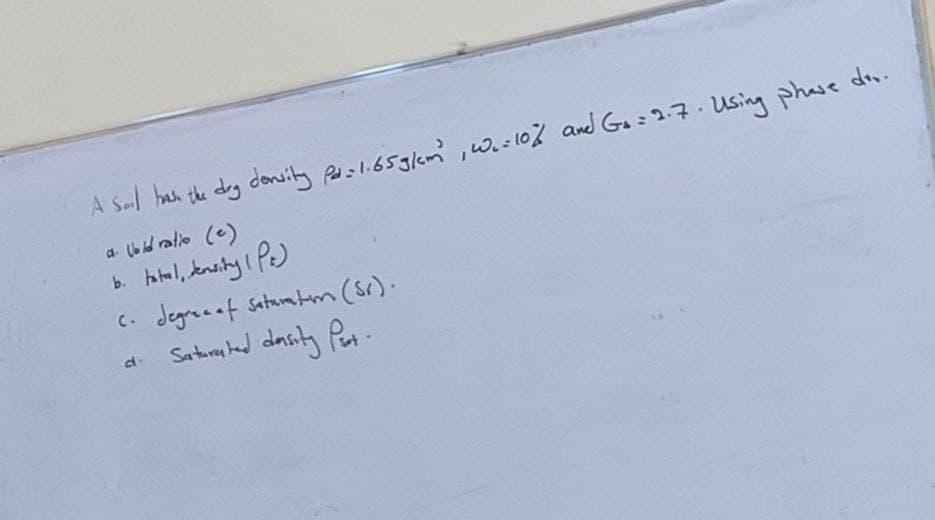 A Soil has the dry density ρd = 1.65 g/cm³, Wc = 10% and Gs = 2.7. Using phase
a. Void ratio (e)
b. total, density (ρt)
c. degree of Saturation (Sr).
d. Saturated density ρsat.